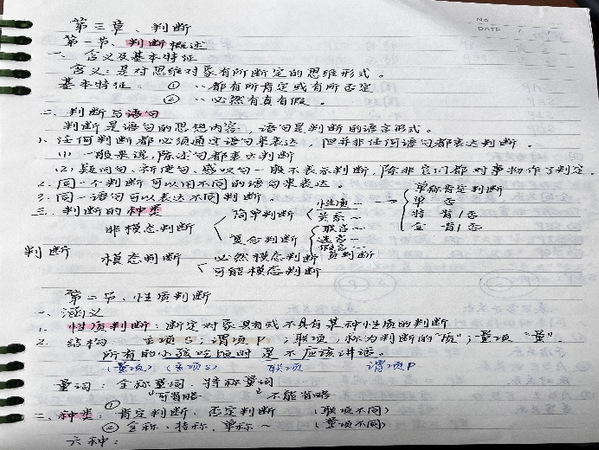 NO.
DATE
第三章、判断
第一节、判断概述
一、含义及基本特征
含义：是对思维对象有所断定的思维形式。
基本特征：① ··都有所肯定或有所否定
② ··必然有真有假。
二、判断与语句
判断是语句的思想内容，语句是判断的语言形式。
1、任何判断都必须通过语句来表达，但并非任何语句都表达判断．
(1) 一般来说，陈述句都表达判断
(2) 疑问句、祈使句、感叹句一般不表示判断，除非它们都对事物作了判定．
2. 同一个判断可以用不同的语句来表达。
3. 同一语句可以表达不同判断．
三、判断的种类
判断
非模态判断
简单判断
性质···
单称肯定判断
单 否
特 肯/否
全 肯/否
关系~
复合判断
联言~
选言~
假言~
负判断
模态判断
必然模态判断
可能模态判断
第二节、性质判断
一、涵义
1. 性质判断：断定对象具有或不具有某种性质的判断
2. 结构 主项S；谓项P；联项，称为判断的“质”；量项“量”．
所有的小孩吃饭时是不应该讲话。
(量项) (主项S) 联项 谓项P
量词：全称量词、特称量词
可省略 不能省略
二、种类：① 肯定判断、否定判断 （联项不同）
② 全称、特称、单称~ （量项不同）
六种：